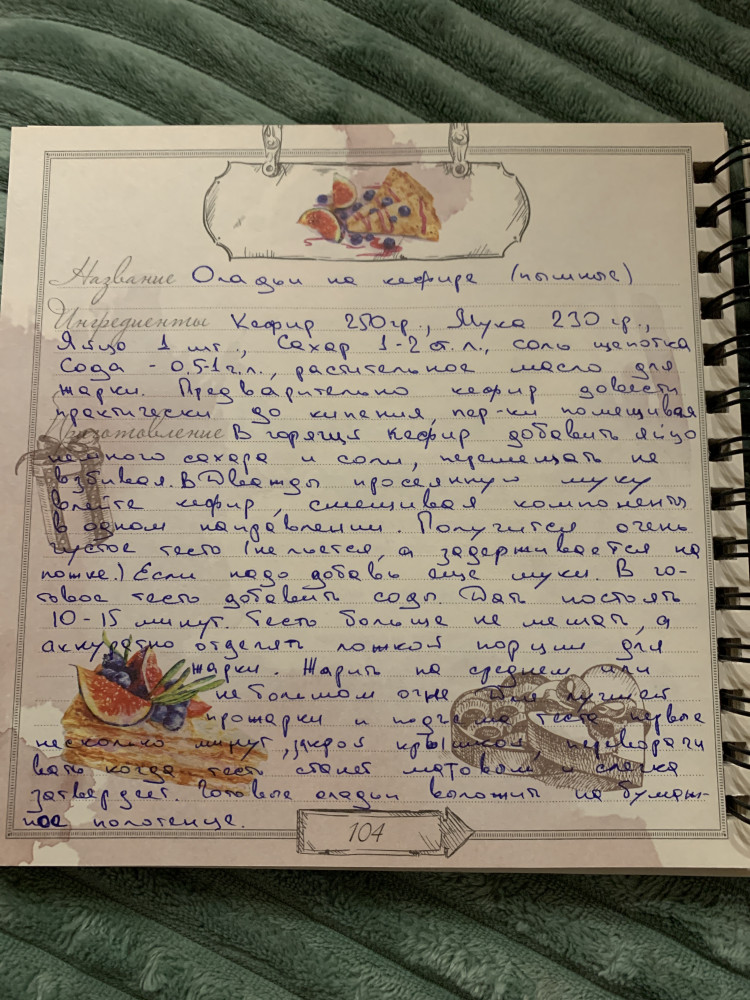 Название Оладьи на кефире (пышные)
Ингредиенты Кефир 250гр., Мука 230 гр.,
Яйцо 1 шт., Сахар 1-2 ст.л., соль щепотка
Сода - 0,5-1 ч.л., растительное масло для
жарки. Предварительно кефир довести
практически до кипания, пер-ки помешивая
Приготовление В горящий кефир добавить яйцо
немного сахара и соли, перемешать не
взбивая. В Дважды просеянную муку
влейте кефир, смешивая компоненты
в одном направлении. Получится очень
густое тесто (не льется, а задерживается на
ложке.) Если надо добавь еще муки. В го-
товое тесто добавить соды. Дать постоять
10-15 минут. Тесто больше не мешать, а
аккуратно отделять ложкой порции для
жарки. Жарить на среднем или
небольшом огне. Для лучшей
прожарки и подъема теста первые
несколько минут, закрой крышкой, переворачи
вать когда тесто станет матовым и слегка
затвердеет. Готовые оладьи выложить на бумаж-
ное полотенце.
104